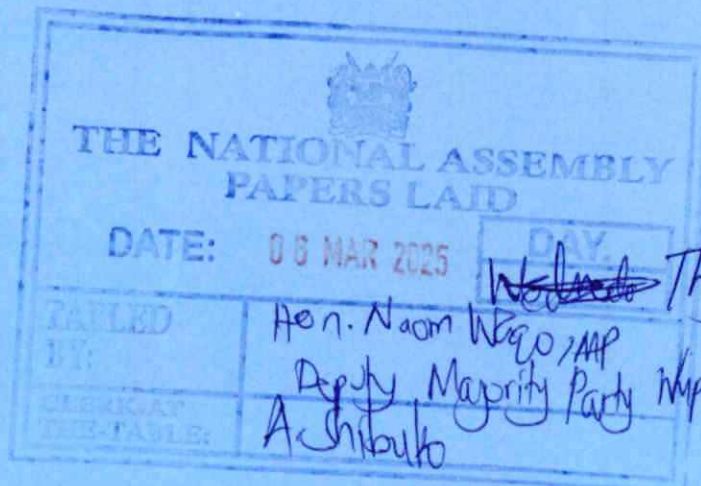 THE NATIONAL ASSEMBLY
PAPERS LAID
DATE: 06 MAR 2025 DAY.
TABLED BY: Hon. Naom Waqo, MP
Deputy Majority Party Whip
CLERK AT THE-TABLE: A. Shibuko